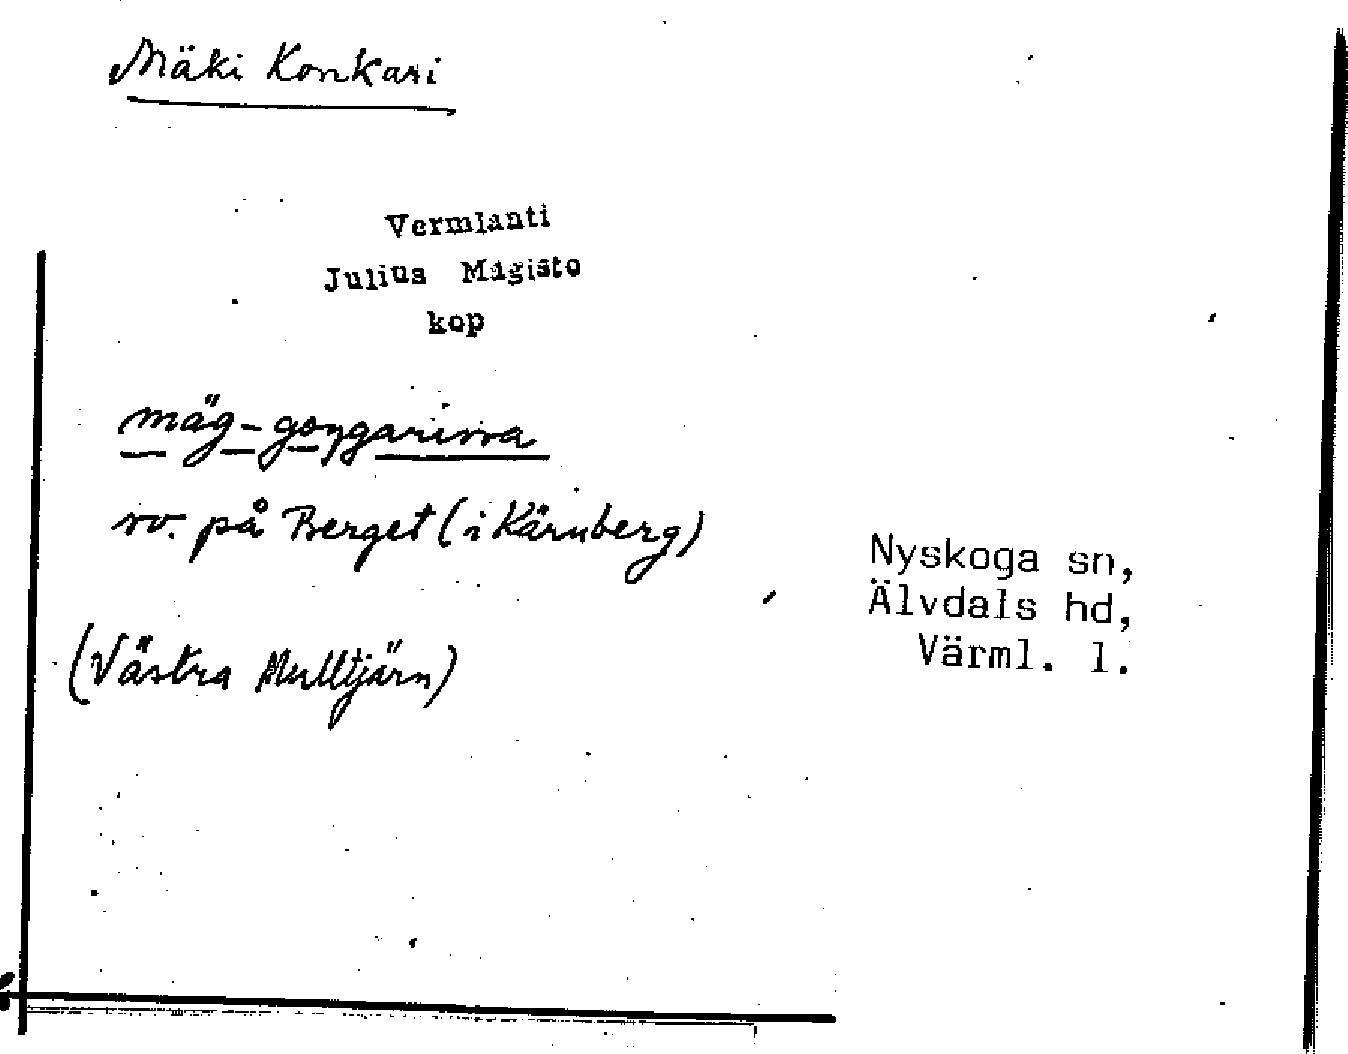 Mäki Konkari
Vermlanti
Julius Mägiste
kop
mäg-goŋgarissa
sv. på Berget (i Kärnberg)
(Västra Mulltjärn)
Nyskoga sn,
Älvdals hd,
Värml. l.